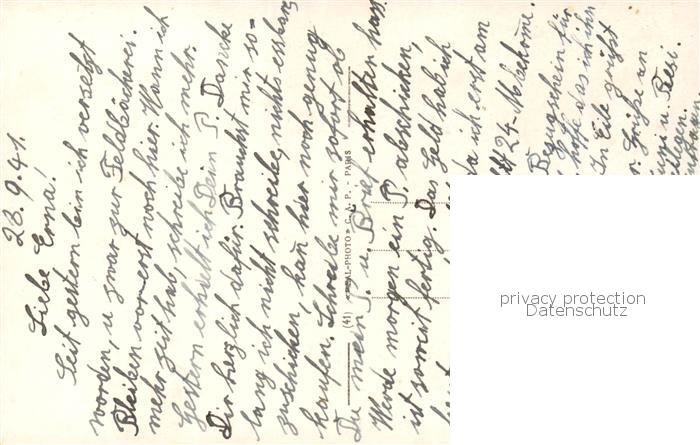 23.9.41.
Liebe Erna!
Seit gestern bin ich versetzt
worden, u zwar zur Feldbäckerei.
Bleiben vorerst noch hier. Wann ich
mehr zeit hab, schreibe ich mehr.
Gestern erhielt ich Dein P. Dancke
Dir herzlich dafür. Brauchst mir so-
lang ich nicht schreibe, nichts essbares
zuschicken, kañ hier noch genug
kaufen. Schreibe mir sofort ob
Du mein P. u. Brief erhalten hast.
Werde morgen ein P. abschicken,
ist soweit fertig. Das Geld hab ich
da ich erst am
24. bekome.
Bezugschein für
hoffe das ich ihn
In Eile grüßt
Grüße an
u.
(41) «REAL-PHOTO» C. A. P. - PARIS
privacy protection
Datenschutz